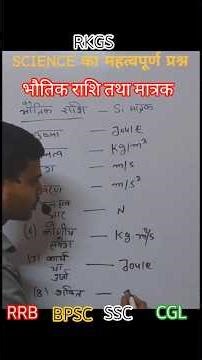 RKGS
SCIENCE का महत्वपूर्ण प्रश्न
भौतिक राशि तथा मात्रक
भौतिक राशि - SI मात्रक
— Joule
— Kg/m³
— m/s
— m/s²
— N
(6) कोणीय संवेग — Kg m²/s
(7) कार्य या ऊर्जा — Joule
(8) शक्ति —
RRB BPSC SSC CGL